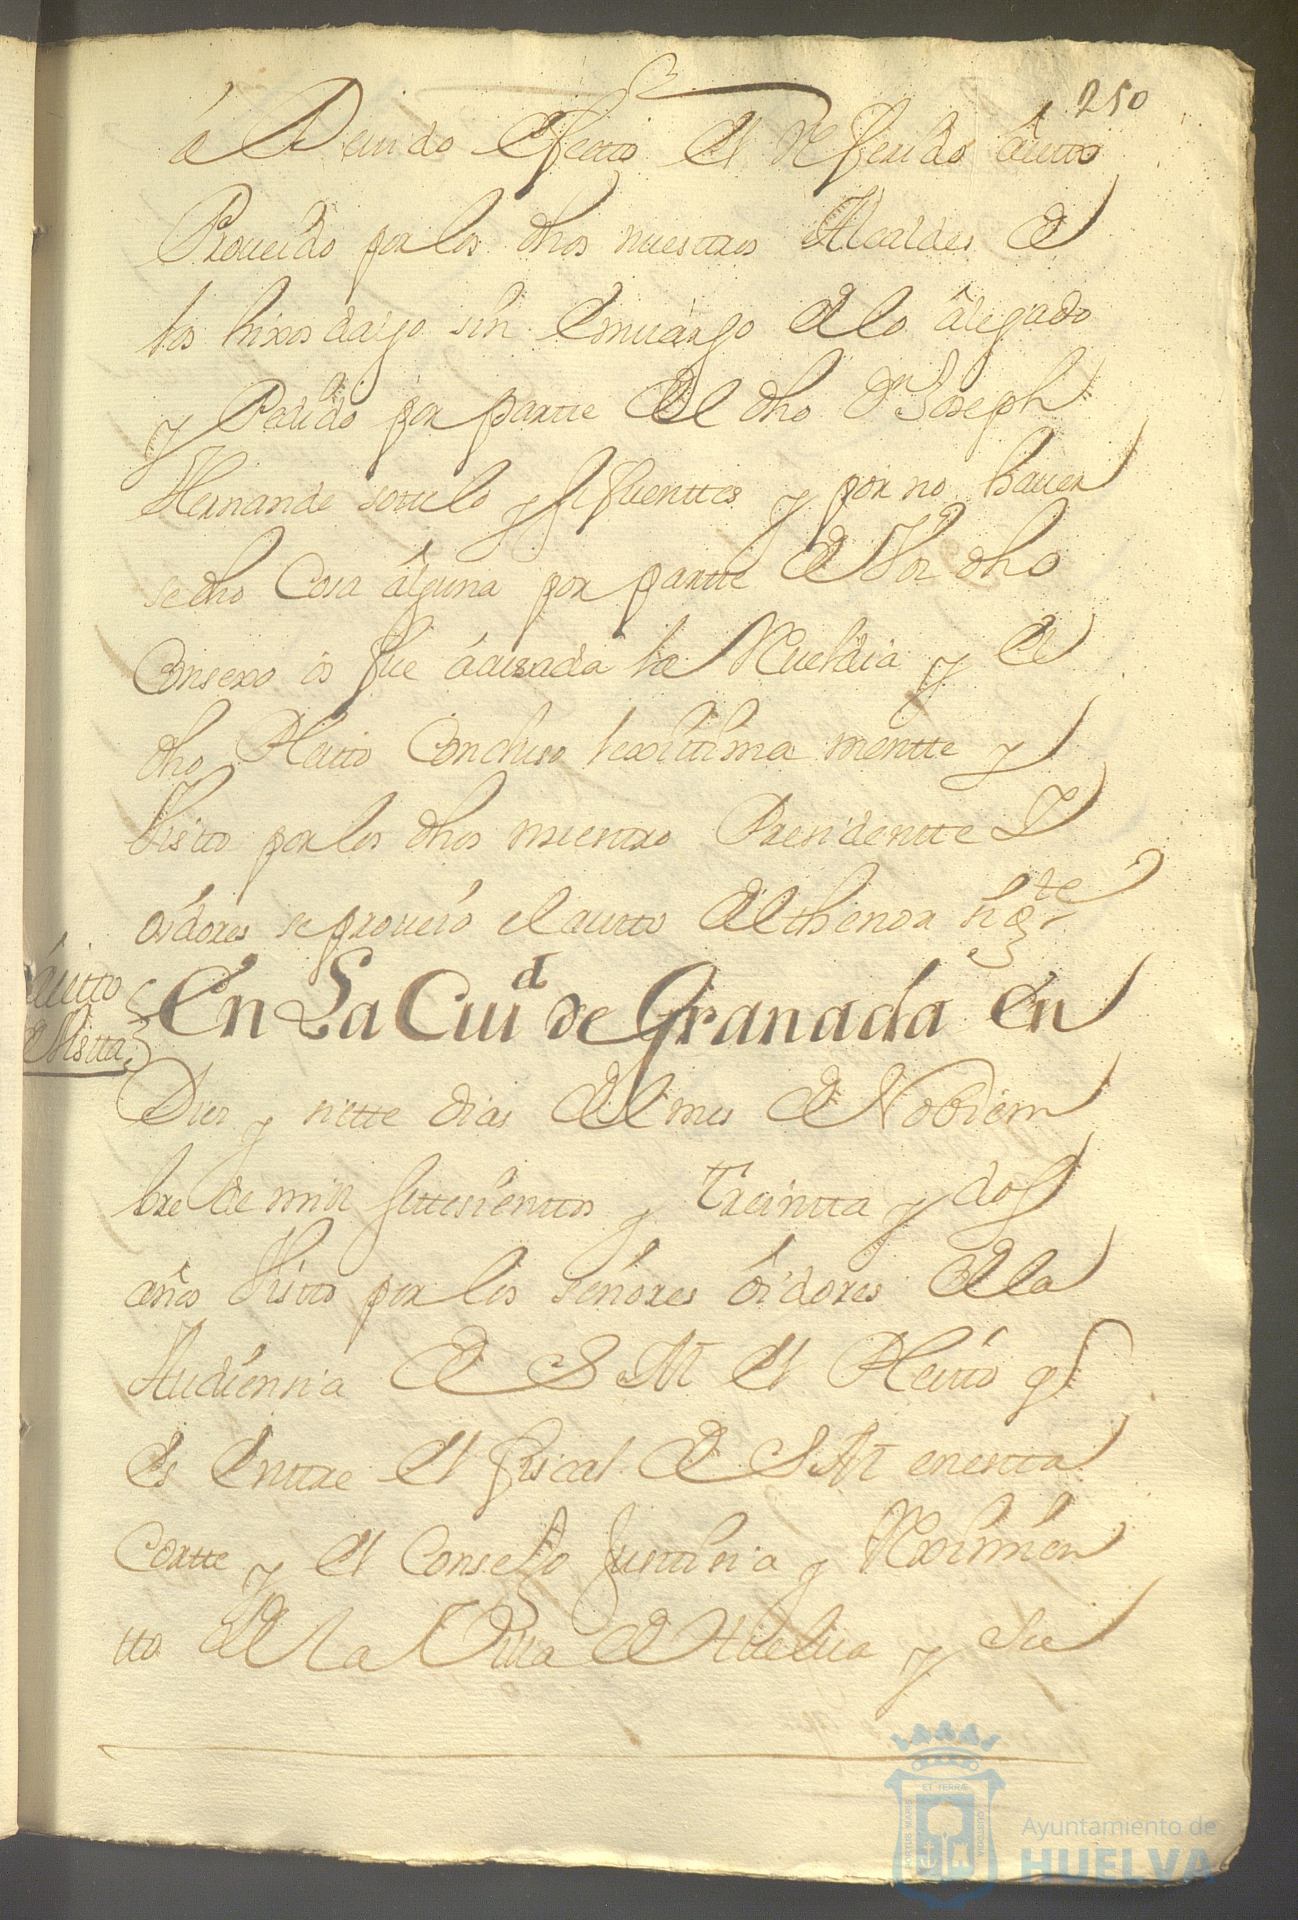 250
á Deuido efecto el Referido áuto
Proueido por los dhos nuestros Alcaldes de
los hixos dalgo sin embargo de lo álegado
y Pedido por parte del dho Dn Joseph
Hernande sotulo y fifuenttes y por no hauer
se dho Cosa álguna por partte de Vos dho
Consexo os fue ácusada la Rueldia y el
dho Pleito Concluso lexitima mentte y
Visto por los dhos nuestro Presidentte Y
oidores se proueio el autto del thenor sigte
áutto
de Vista
En La Ciud de Granada en
Diez y siette dias del mes de Nobiem
bre de mill settesientos y Treintta y dos
años Visto por los señores óidores de la
Audiensia de S M el Pleito q
es Enttre el fiscal de S M en esta
Cortte y el Consejo Justisia y Reximien
tto de la Villa de Huelua y su
ET TERRÆ
Ayuntamiento de
HUELVA